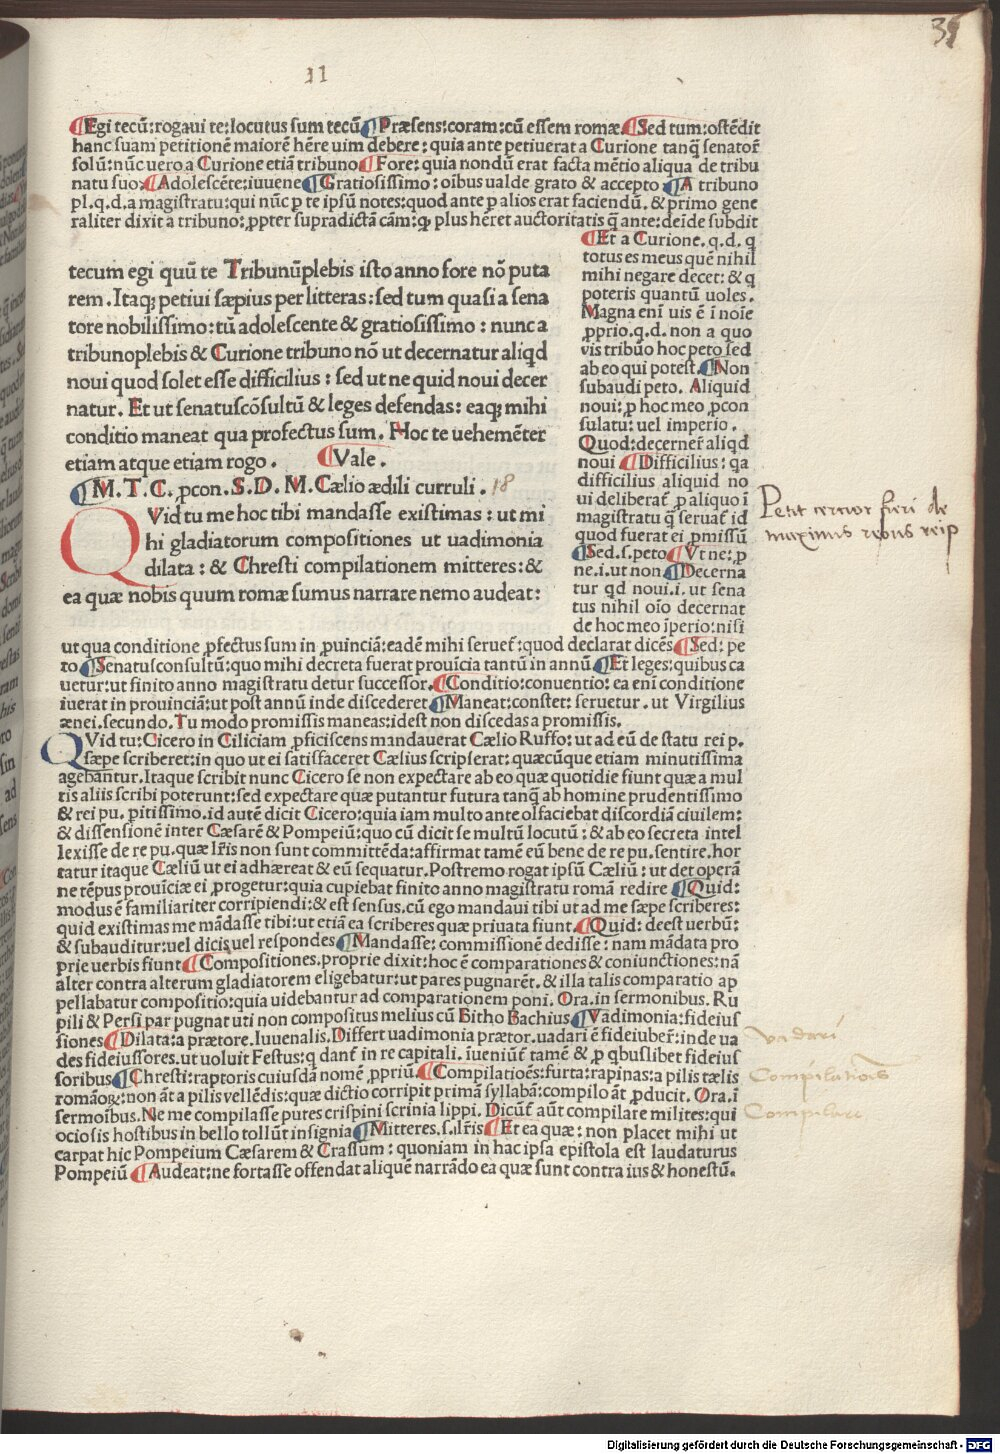 35
II
¶Egi tecū: rogaui te: locutus sum tecū ¶Præsens: coram: cū essem romæ ¶Sed tum: ostēdit
hanc suam petitionē maiorē hēre uim debere: quia ante petiuerat a Curione tanq̄ senatore
solū: nūc uero a Curione etiā tribuno ¶Fore: quia nondū erat facta mētio aliqua de tribu
natu suo: ¶Adolescēte: iuuene ¶Gratiosissimo: oībus ualde grato & accepto ¶A tribuno
pl. q. d. a magistratu: qui nūc p̄ te ipsū notes: quod ante p̄ alios erat faciendū. & primo gene
raliter dixit a tribuno: ꝓpter supradictā cām: ꝙ plus hēret auctoritatis q̄ ante: deīde subdit
tecum egi quū te Tribunūplebis isto anno fore nō puta
rem. Itaqꝫ petiui sæpius per litteras: sed tum quasi a sena
tore nobilissimo: tū adolescente & gratiosissimo: nunc a
tribunoplebis & Curione tribuno nō ut decernatur aliqd
noui quod solet esse difficilius: sed ut ne quid noui decer
natur. Et ut senatuscōsultū & leges defendas: eaqꝫ mihi
conditio maneat qua profectus sum. Hoc te uehemēter
etiam atque etiam rogo. ¶Vale.
¶M. T. C. ꝓcon. S. D. M. Cælio ædili curruli. 18
QVid tu me hoc tibi mandasse existimas: ut mi
hi gladiatorum compositiones ut uadimonia
dilata: & Chresti compilationem mitteres: &
ea quæ nobis quum romæ sumus narrare nemo audeat:
¶Et a Curione. q. d. q
totus es meus quē nihil
mihi negare decet: & q
poteris quantū uoles.
Magna enī uis ē ī noīe
ꝓprio. q. d. non a quo
vis tribūo hoc peto sed
ab eo qui potest. ¶Non
subaudi peto. Aliquid
noui: ꝓ hoc meo ꝓcon
sulatu: uel imperio.
Quod: decerner̄ aliqd
noui ¶Difficilius: qa
difficilius aliquid no
ui deliberat̄ ꝑ aliquo ī
magistratu q̄ seruat̄ id
quod fuerat ei ꝓmissū
¶Sed. s. peto ¶Vt ne: ꝓ
ne. i. ut non ¶Decerna
tur qd noui. i. ut sena
tus nihil oīo decernat
de hoc meo īperio: nisi
Petit
maximis rebus reip
ut qua conditione ꝓfectus sum in ꝓuinciā: eadē mihi seruet̄: quod declarat dicēs ¶Sed: pe
to ¶Senatusconsultū: quo mihi decreta fuerat prouīcia tantū in annū ¶Et leges: quibus ca
uetur: ut finito anno magistratu detur successor. ¶Conditio: conuentio: ea enī conditione
iuerat in prouinciā: ut post annū inde discederet ¶Maneat: constet: seruetur. ut Virgilius
ænei. secundo. Tu modo promissis maneas: idest non discedas a promissis.
QVid tu: Cicero in Ciliciam ꝓficiscens mandauerat Cælio Ruffo: ut ad eū de statu rei p.
sæpe scriberet: in quo ut ei satisfaceret Cælius scripserat: quæcūque etiam minutissima
agebantur. Itaque scribit nunc Cicero se non expectare ab eo quæ quotidie fiunt quæ a mul
tis aliis scribi poterunt: sed expectare quæ putantur futura tanq̄ ab homine prudentissimo
& rei pu. pitissimo. id autē dicit Cicero: quia iam multo ante olfaciebat discordiā ciuilem:
& dissensionē inter Cæsarē & Pompeiū: quo cū dicit se multū locutū: & ab eo secreta intel
lexisse de re pu. quæ lr̄is non sunt committēda: affirmat tamē eū bene de re pu. sentire. hor
tatur itaque Cæliū ut ei adhæreat & eū sequatur. Postremo rogat ipsū Cæliū: ut det operā
ne tēpus prouīciæ ei ꝓrogetur: quia cupiebat finito anno magistratu romā redire ¶Quid:
modus ē familiariter corripiendi: & est sensus. cū ego mandaui tibi ut ad me sæpe scriberes:
quid existimas me mādasse tibi: ut etiā ea scriberes quæ priuata fiunt. ¶Quid: deest uerbū:
& subauditur: uel dicis uel respondes ¶Mandasse: commissionē dedisse: nam mādata pro
prie uerbis fiunt ¶Compositiones. proprie dixit: hoc ē comparationes & coniunctiones: nā
alter contra alterum gladiatorem eligebatur: ut pares pugnarēt. & illa talis comparatio ap
pellabatur compositio: quia uidebantur ad comparationem poni. Ora. in sermonibus. Ru
pili & Persi par pugnat uti non compositus melius cū Bitho Bachius ¶Vadimonia: fideius
siones ¶Dilata: a prætore. Iuuenalis. Differt uadimonia prætor. uadari ē fideiuber̄: inde ua
des fideiussores. ut uoluit Festus: q dant̄ in re capitali. īueniūt̄ tamē & ꝓ qbuslibet fideius
soribus ¶Chresti: raptoris cuiusdā nomē ꝓpriū. ¶Compilatioēs: furta: rapinas: a pilis tælis
romāoꝝ: non āt a pilis vellēdis: quæ dictio corripit primā syllabā: compilo āt ꝓducit. Ora. ī
sermoībus. Ne me compilasse putes crispini scrinia lippi. Dicūt̄ aūt compilare milites: qui
ociosis hostibus in bello tollūt insignia ¶Mitteres. s. lr̄is ¶Et ea quæ: non placet mihi ut
carpat hic Pompeium Cæsarem & Crassum: quoniam in hac ipsa epistola est laudaturus
Pompeiū ¶Audeat: ne fortasse offendat aliquē narrādo ea quæ sunt contra ius & honestū.
Vadari
Compilatiōes
Compilare
Digitalisierung gefördert durch die Deutsche Forschungsgemeinschaft - DFG